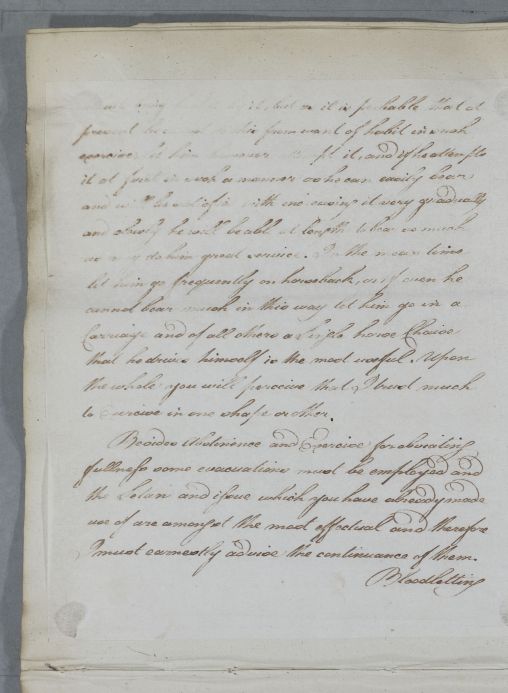 it, but as it is probable that at
present he cannot do this from want of habit in such
exercises let him however attempt it, and if he attempts
it at first in such a manner as he can easily bear
and with increasing it very gradually
and slowly he will be able at length to bear as much
as may do him great service. In the mean time
let him go frequently on horseback, or if even he
cannot bear much in this way let him go in a
Carriage and of all others a Single horse Chaise
that he drives himself is the most useful. Upon
the whole you will perceive that I trust much
to Exercise in one shape or other.
Besides Abstinence and Exercise for obviating
fullness some evacuations must be employed and
the Seton and issue which you have already made
use of are amongst the most effectual and therefore
I must earnestly advise the continuance of them.
Bloodletting